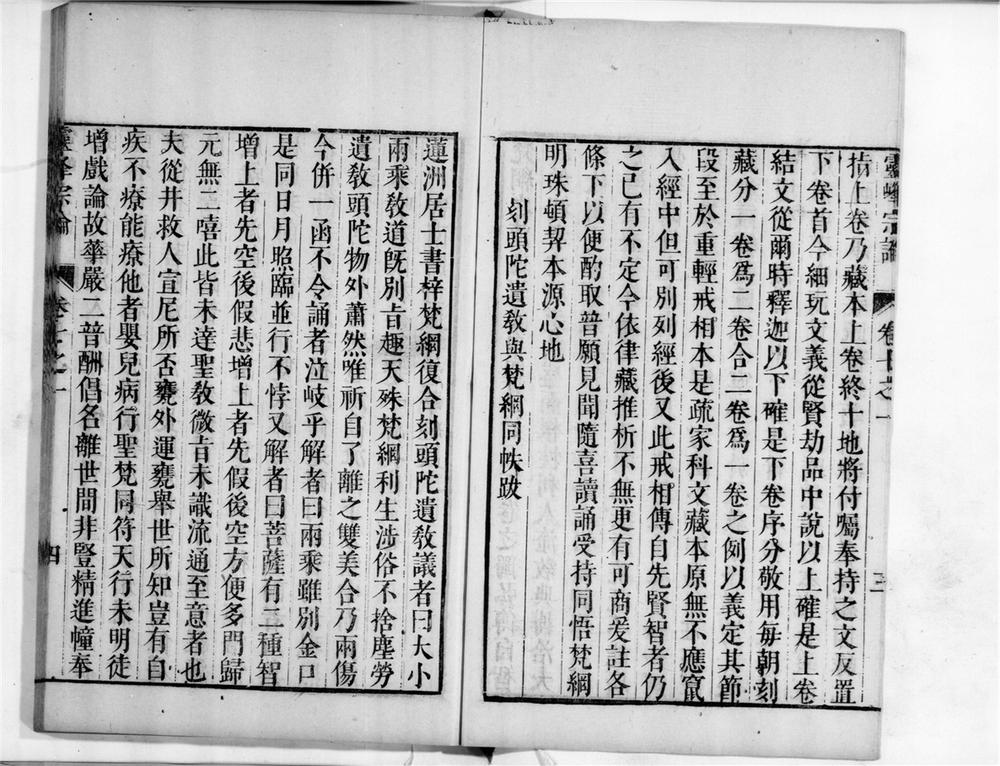 靈峰宗論 卷七之一 三
指上卷乃藏本上卷終十地將付囑奉持之文反置
下卷首今細玩文義從賢劫品中說以上確是上卷
結文從爾時釋迦以下確是下卷序分敬用每朝刻
藏分一卷爲二卷合二卷爲一卷之例以義定其節
段至於重輕戒相本是疏家科文藏本原無不應竄
入經中但可別列經後又此戒相傳自先賢智者仍
之已有不定今依律藏推析不無更有可商爰註各
條下以便酌取普願見聞隨喜讀誦受持同悟梵網
明珠頓契本源心地
刻頭陀遺敎與梵網同帙跋
蓮洲居士書梓梵網復合刻頭陀遺敎議者曰大小
兩乘敎道旣別㫖趣天殊梵網利生涉俗不捨塵勞
遺敎頭陀物外蕭然唯祈自了離之雙美合乃兩傷
今併一函不令誦者泣岐乎解者曰兩乘雖別金口
是同日月照臨並行不悖又解者曰菩薩有二種智
增上者先空後假悲增上者先假後空方便多門歸
元無二嘻此皆未達聖敎微㫖未識流通至意者也
夫從井救人宣尼所否甕外運甕舉世所知豈有自
疾不療能療他者嬰兒病行聖梵同符天行未明徒
增戲論故華嚴二普酬倡名離世間非豎精進幢奉
靈峰宗論 卷七之一 四